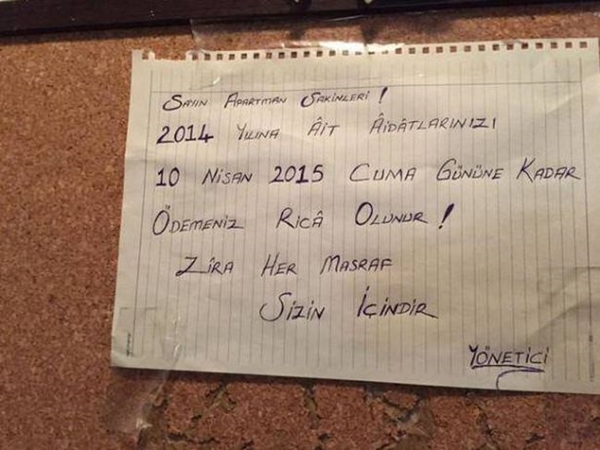 Sayın Apartman Sakinleri !
2014 Yılına Âit Âidâtlarınızı
10 Nisan 2015 Cuma Gününe Kadar
Ödemeniz Ricâ Olunur !
Zira Her Masraf
Sizin İçindir
Yönetici